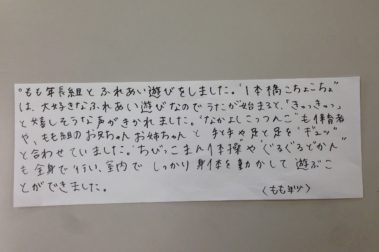 "もも年長組とふれあい遊びをしました。"1本橋こちょこちょ"
は、大好きなふれあい遊びなのでうたが始まると、「きゃっきゃっ」
と嬉しそうな声がきかれました。"なかよしこっつんこ"も保育者
や、もも組のお兄ちゃんお姉ちゃんと手と手や足と足を"ギュッ"
と合わせていました。"ちびっこまん体操や"ぐるぐるどかん"
も全身で行い、室内でしっかり身体を動かして遊ぶこ
とができました。
〈もも年少〉